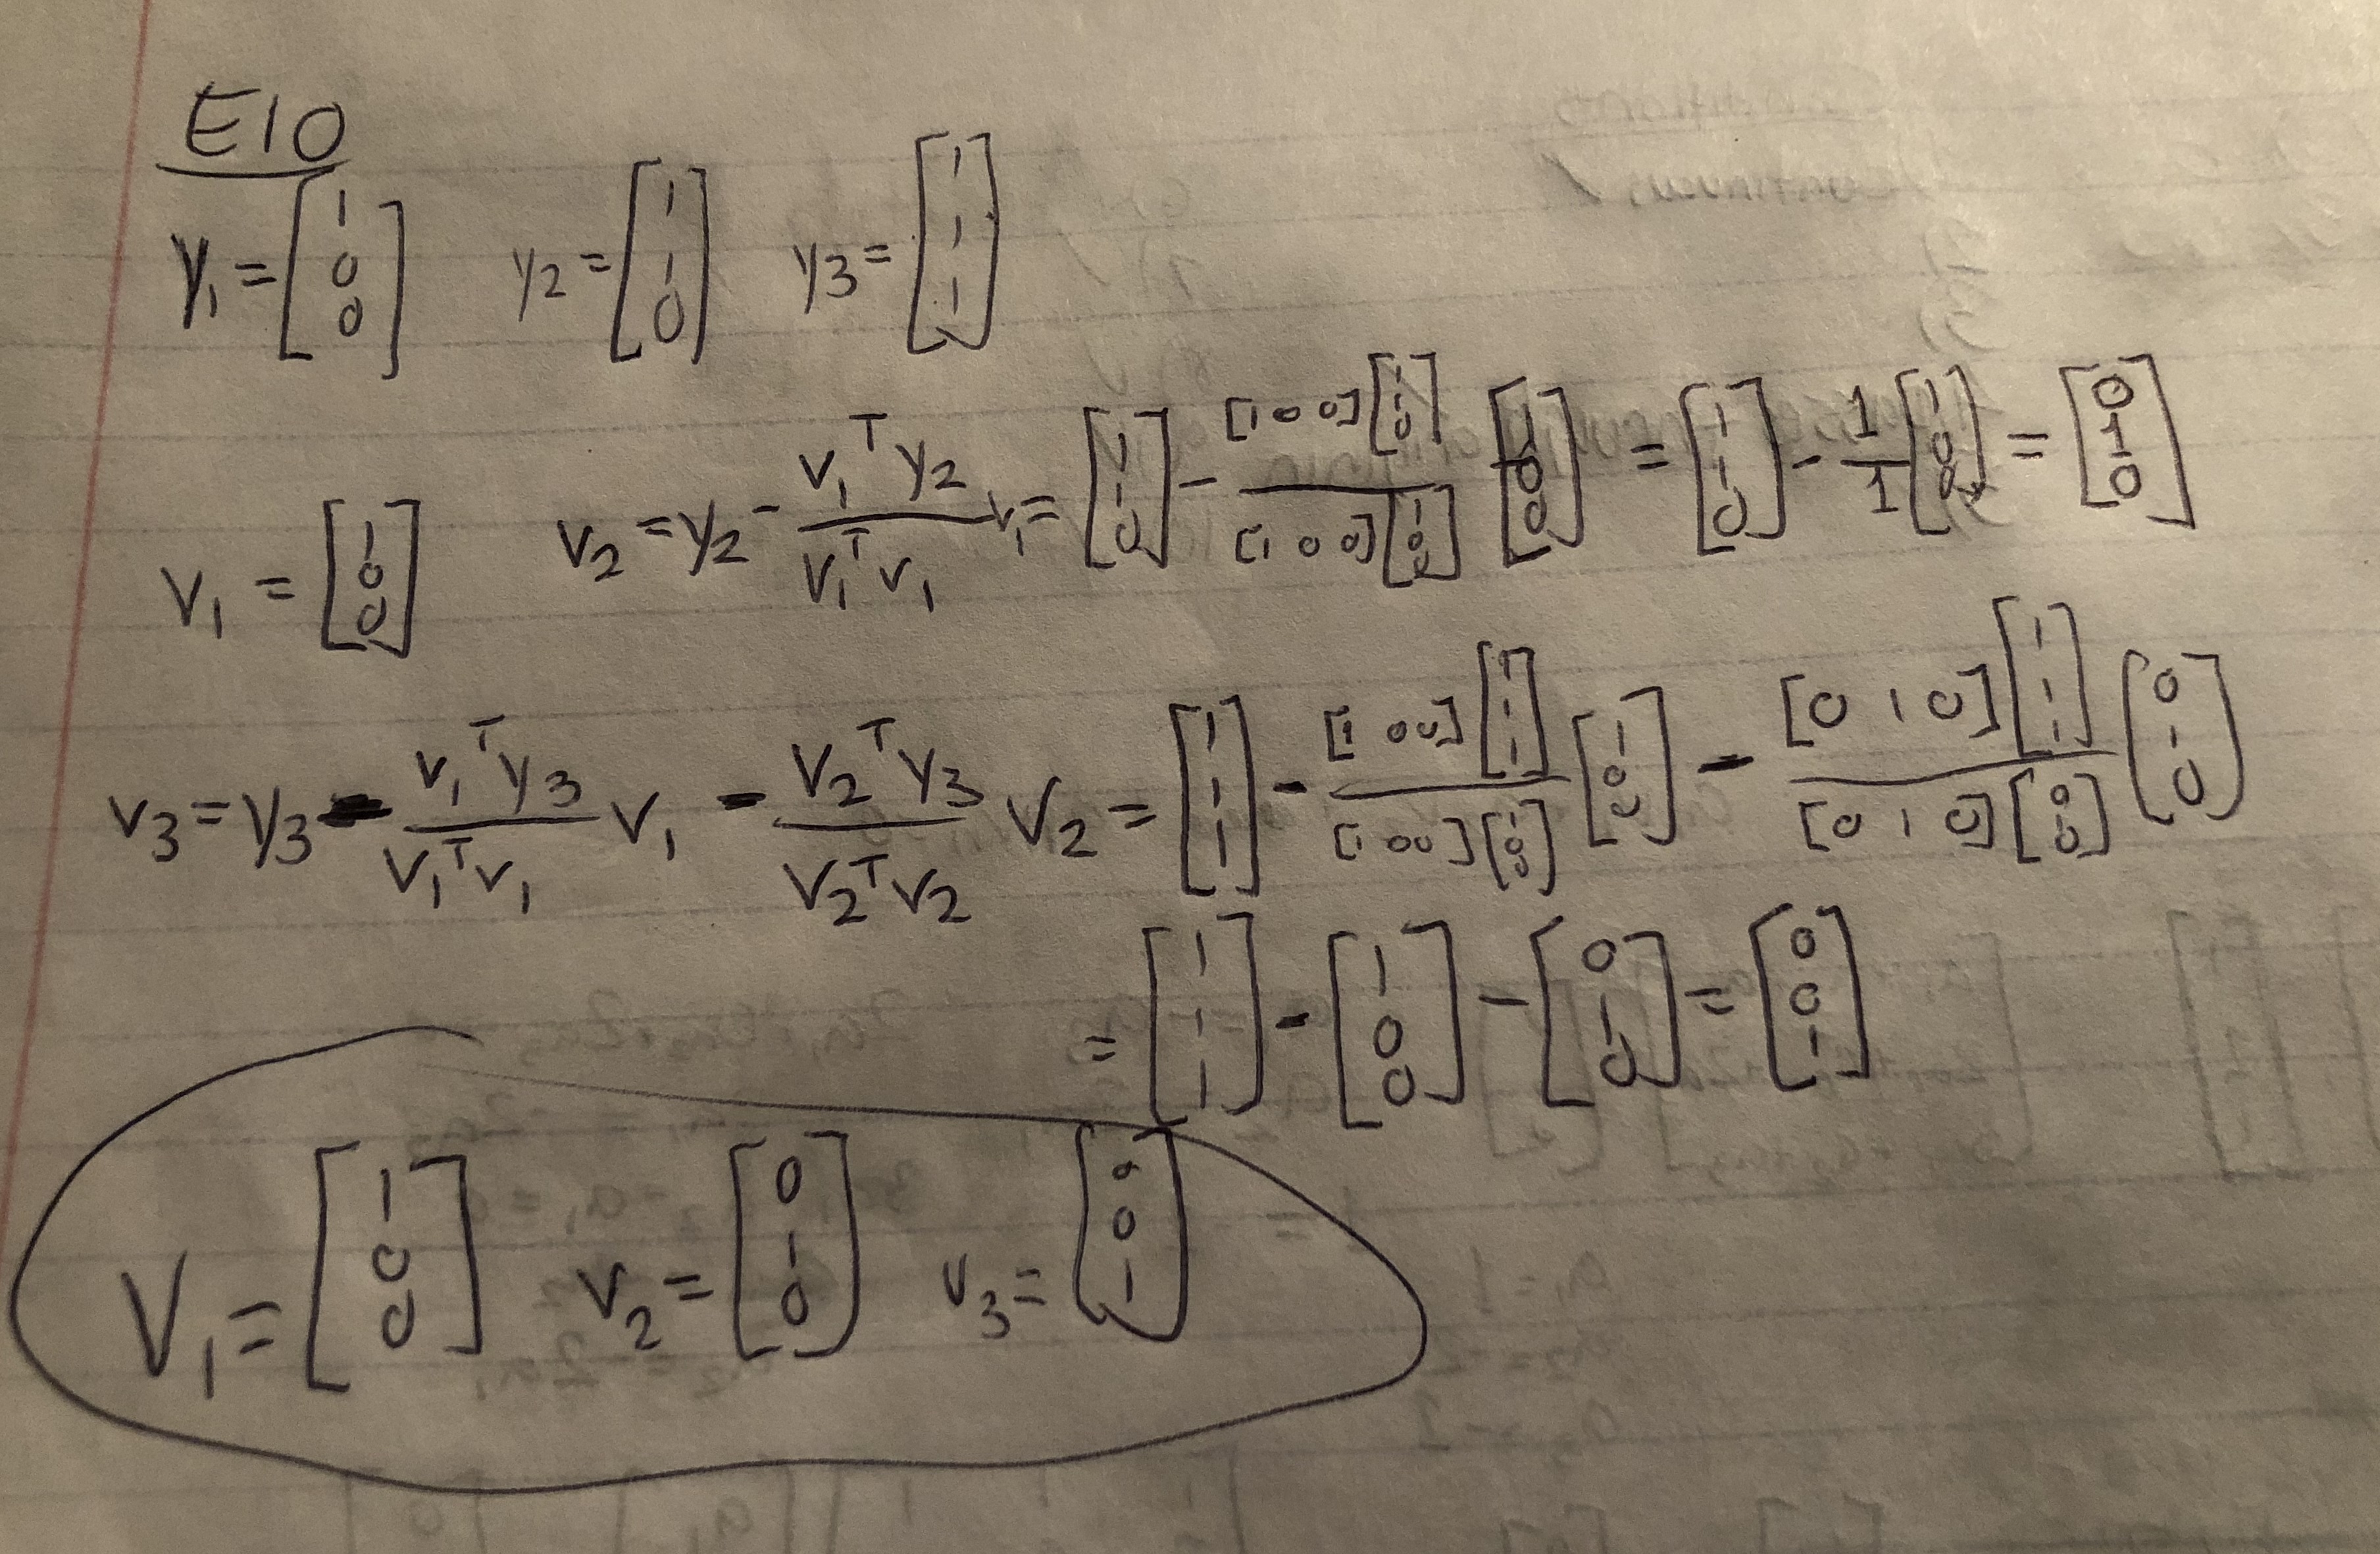 E10
y₁ = [1 0 0] y₂ = [1 1 0] y₃ = [1 1 1]
v₁ = [1 0 0] v₂ = y₂ - (v₁ᵀ y₂)/(v₁ᵀ v₁) v₁ = [1 1 0] - ([1 0 0][1 1 0])/([1 0 0][1 0 0]) [1 0 0] = [1 1 0] - 1/1 [1 0 0] = [0 1 0]
v₃ = y₃ - (v₁ᵀ y₃)/(v₁ᵀ v₁) v₁ - (v₂ᵀ y₃)/(v₂ᵀ v₂) v₂ = [1 1 1] - ([1 0 0][1 1 1])/([1 0 0][1 0 0]) [1 0 0] - ([0 1 0][1 1 1])/([0 1 0][0 1 0]) [0 1 0]
= [1 1 1] - [1 0 0] - [0 1 0] = [0 0 1]
V₁ = [1 0 0] v₂ = [0 1 0] v₃ = [0 0 1]